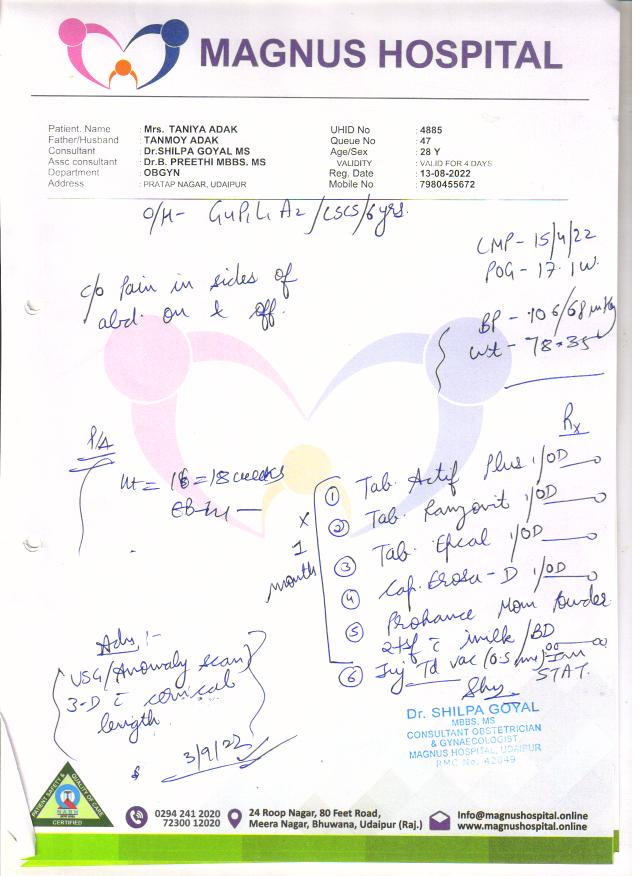 MAGNUS HOSPITAL
Patient. Name : Mrs. TANIYA ADAK UHID No : 4885
Father/Husband : TANMOY ADAK Queue No : 47
Consultant : Dr.SHILPA GOYAL MS Age/Sex : 28 Y
Assc consultant : Dr.B. PREETHI MBBS. MS VALIDITY : VALID FOR 4 DAYS
Department : OBGYN Reg. Date : 13-08-2022
Address : PRATAP NAGAR, UDAIPUR Mobile No : 7980455672
O/H- G4P1L1A2/LSCS/6yrs.
LMP- 15/4/22
POG- 17.1W.
c/o Pain in sides of
abd. on & off.
BP - 106/68
wt - 78.35
P/A
Rx
18 weeks
① Tab. Actif Plus 1/OD
② Tab. 1/OD
③ Tab. 1/OD
④ Cap. - D 1/OD
⑤ Prohance Mom Powder
2tsf c milk/BD
x 1 month
⑥ Inj Td vac (0.5 ml) Im
STAT.
Adv :-
USG/Anomaly scan
3-D c cervical
length
3/9/22
Dr. SHILPA GOYAL
MBBS, MS
CONSULTANT OBSTETRICIAN
& GYNAECOLOGIST
MAGNUS HOSPITAL, UDAIPUR
RMC No. 42049
PATIENT SAFETY & QUALITY OF CARE
NABH
CERTIFIED
0294 241 2020
72300 12020
24 Roop Nagar, 80 Feet Road,
Meera Nagar, Bhuwana, Udaipur (Raj.)
Info@magnushospital.online
www.magnushospital.online